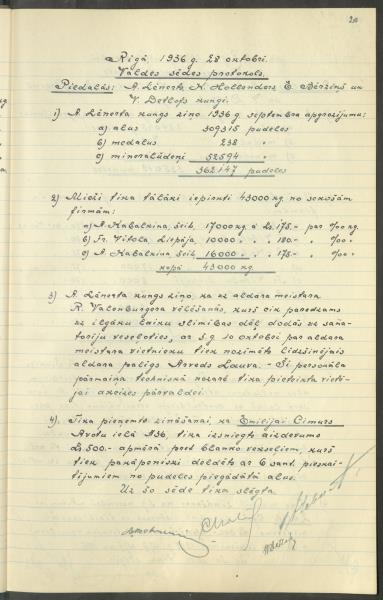 20
Rīgā, 1936 g. 28 oktobrī.
Valdes sēdes protokols.
Piedalās: A. Lēnerts K. Hollanders E. Bērziņš un
V. Detlofs kungi.
1) A. Lēnerta kungs ziņo 1936 g. septembra apgrozījumu:
a) alus 309315 pudeles
b) medalus 238 "
c) minerālūdeņi 52594 "
362147 pudeles
2) Mieži tika tālāki iepirkti 43000 kg. no sekošām
firmām:
a) A. Kabalkina, Leib. 17000 kg a Ls. 175.- par %00 kg.
b) Fr. Vītola, Liepāja 10000 " " 180.- " %00 "
c) A. Kabalkina, Leib. 16000 " " 175.- " %00 "
kopā 43000 kg.
3) A. Lēnerta kungs ziņo, ka uz aldara meistara
R. Valenburgera vēlēšanos, kurš bij paredzams
uz ilgāku laiku slimības dēļ dodās uz sana-
toriju veseļoties, ar š.g. 10 oktobri par aldara
meistara vietnieku tiek nozīmēts līdzšinējais
aldara palīgs Arveds Lauva. - Šī personāla
pārmaiņa techniskā nozarē tika pieteikta vietē-
jai akcizes pārvaldei.
4) Tika pieņemts zināšanai, ka Emilijai Cimurs
Avotu ielā № 36, tika izsniegts aizdevums
Ls. 500.- apmērā pret blanko vekseļiem, kurš
tiek pakāpeniski deldēts ar 6 sant. pieskai-
tījumiem no pudeles piegādātā alus.
Uz šo sēde tika slēgta.